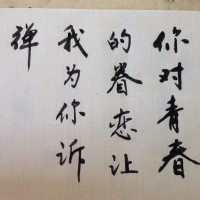 你对青春
的眷恋让
我为你诉
弹